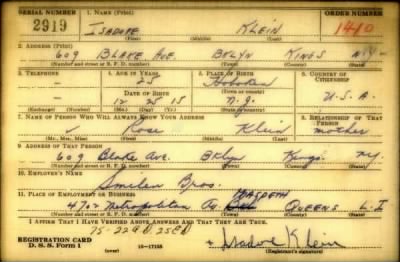 SERIAL NUMBER 1. NAME (Print) ORDER NUMBER
2919 ISADORE KLEIN 1410
(First) (Middle) (Last)
2. ADDRESS (Print)
609 BLAKE AVE. BKLYN KINGS N.Y.
(Number and street or R. F. D. number) (Town) (County) (State)
3. TELEPHONE 4. AGE IN YEARS 5. PLACE OF BIRTH 6. COUNTRY OF CITIZENSHIP
— 25 Hoboken
DATE OF BIRTH (Town or county)
12 25 15 N.J. U.S.A.
(Exchange) (Number) (Mo.) (Day) (Yr.) (State or country)
7. NAME OF PERSON WHO WILL ALWAYS KNOW YOUR ADDRESS 8. RELATIONSHIP OF THAT PERSON
Rose Klein mother
(Mr., Mrs., Miss) (First) (Middle) (Last)
9. ADDRESS OF THAT PERSON
609 Blake Ave. Bklyn Kings N.Y.
(Number and street or R. F. D. number) (Town) (County) (State)
10. EMPLOYER'S NAME
Smilen Bros.
11. PLACE OF EMPLOYMENT OR BUSINESS MASPETH
4702 Metropolitan QUEENS L.I.
(Number and street or R. F. D. number) (Town) (County) (State)
I AFFIRM THAT I HAVE VERIFIED ABOVE ANSWERS AND THAT THEY ARE TRUE.
REGISTRATION CARD Isadore Klein
D. S. S. Form 1 (Registrant's signature)